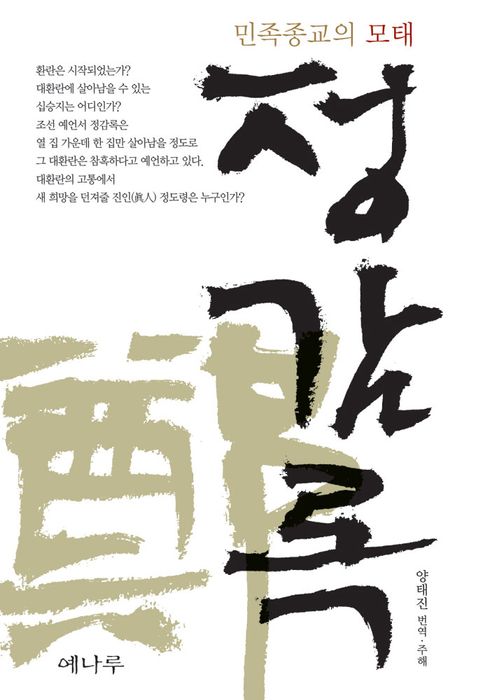 민족종교의 모태
환란은 시작되었는가?
대환란에 살아남을 수 있는
십승지는 어디인가?
조선 예언서 정감록은
열 집 가운데 한 집만 살아남을 정도로
그 대환란은 참혹하다고 예언하고 있다.
대환란의 고통에서
새 희망을 던져줄 진인(眞人) 정도령은 누구인가?
정감록
양태진 번역·주해
예나루